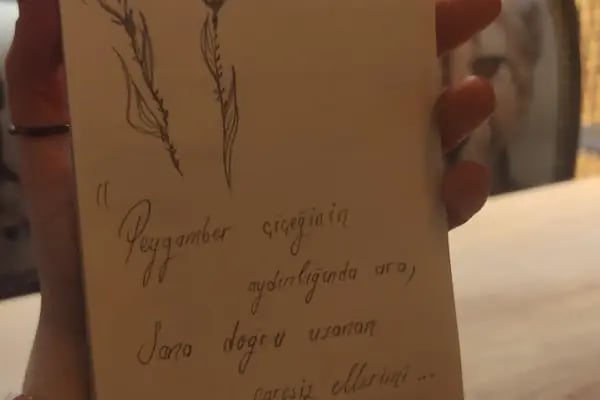 "Peygamber çiçeğinin
aydınlığında ara,
Sana doğru uzanan
çaresiz ellerimi...